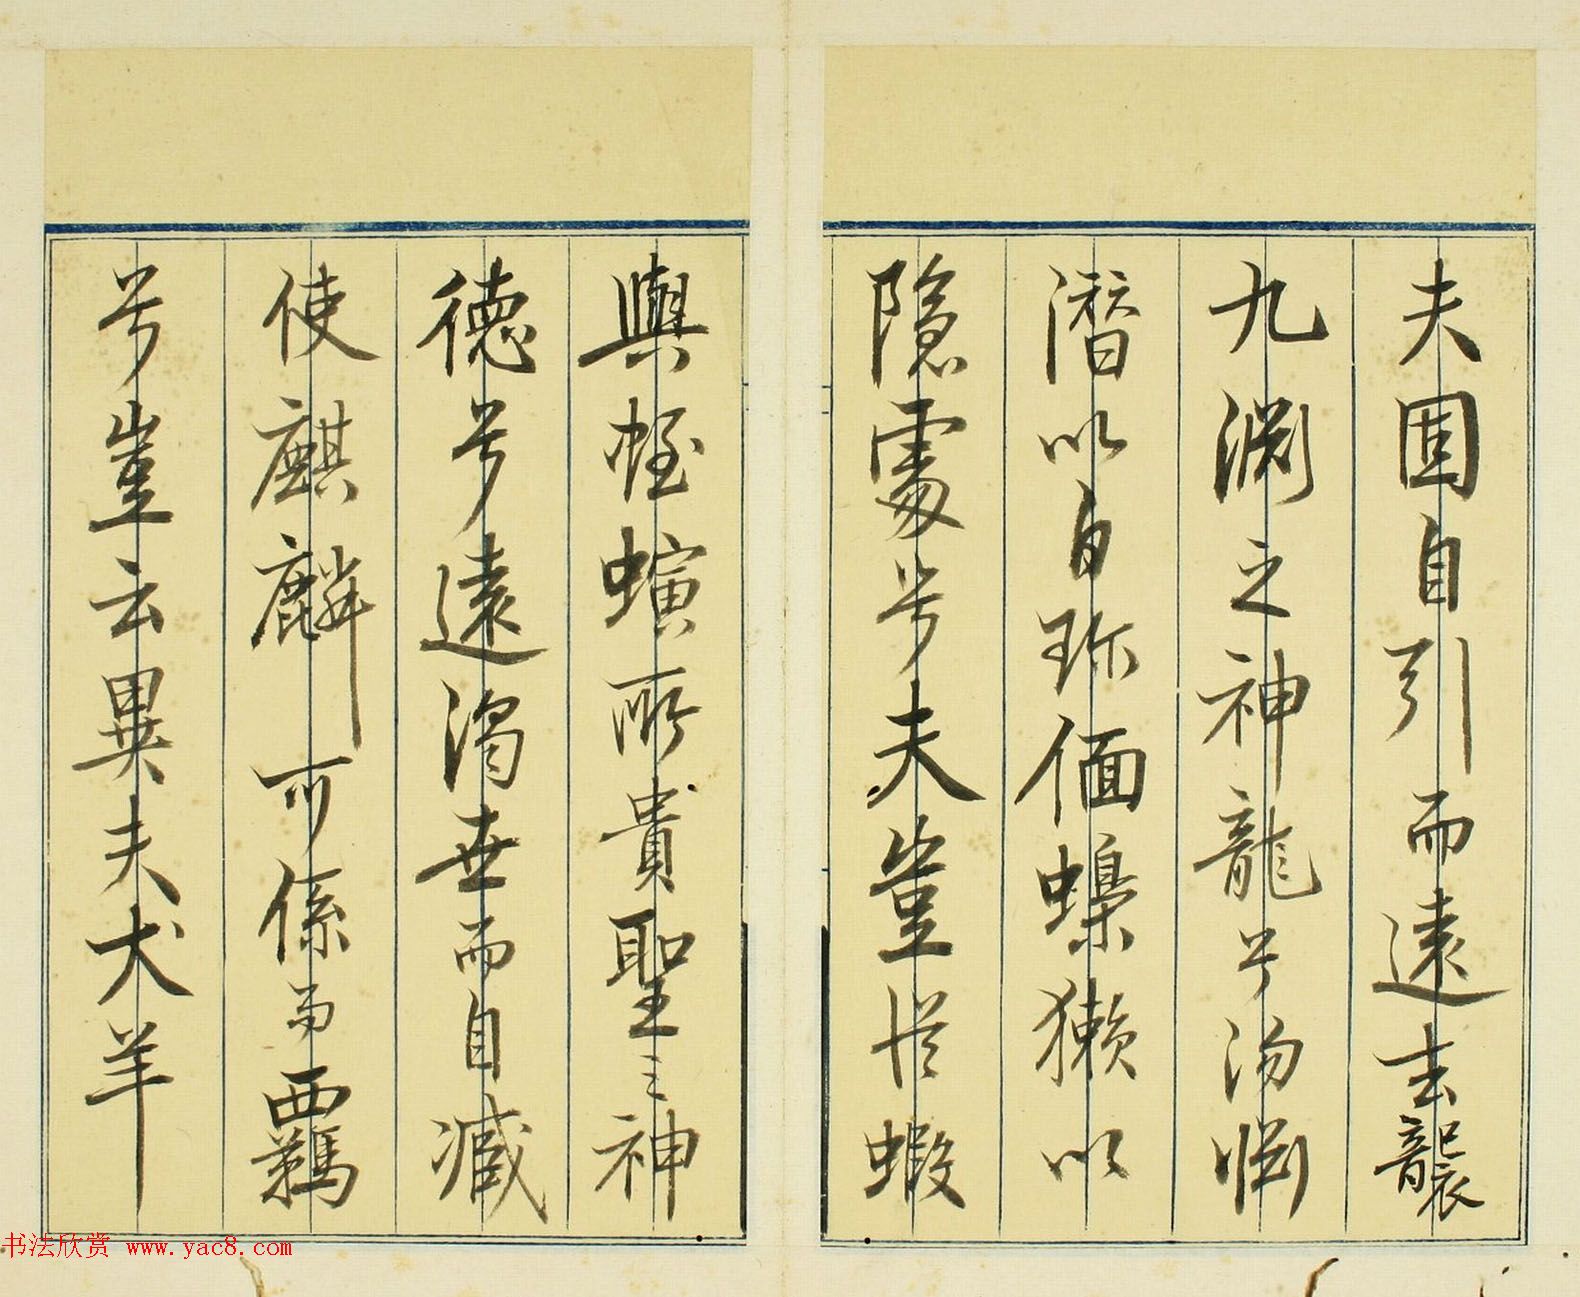 夫固自引而遠去襲
九淵之神龍兮沕淵
潛以自珍偭蟂獺以
隱處兮夫豈從蝦
與蛭螾所貴聖之神
德兮遠濁世而自藏
使麒麟可係而羈
兮豈云異夫犬羊
书法欣赏 www.yac8.com